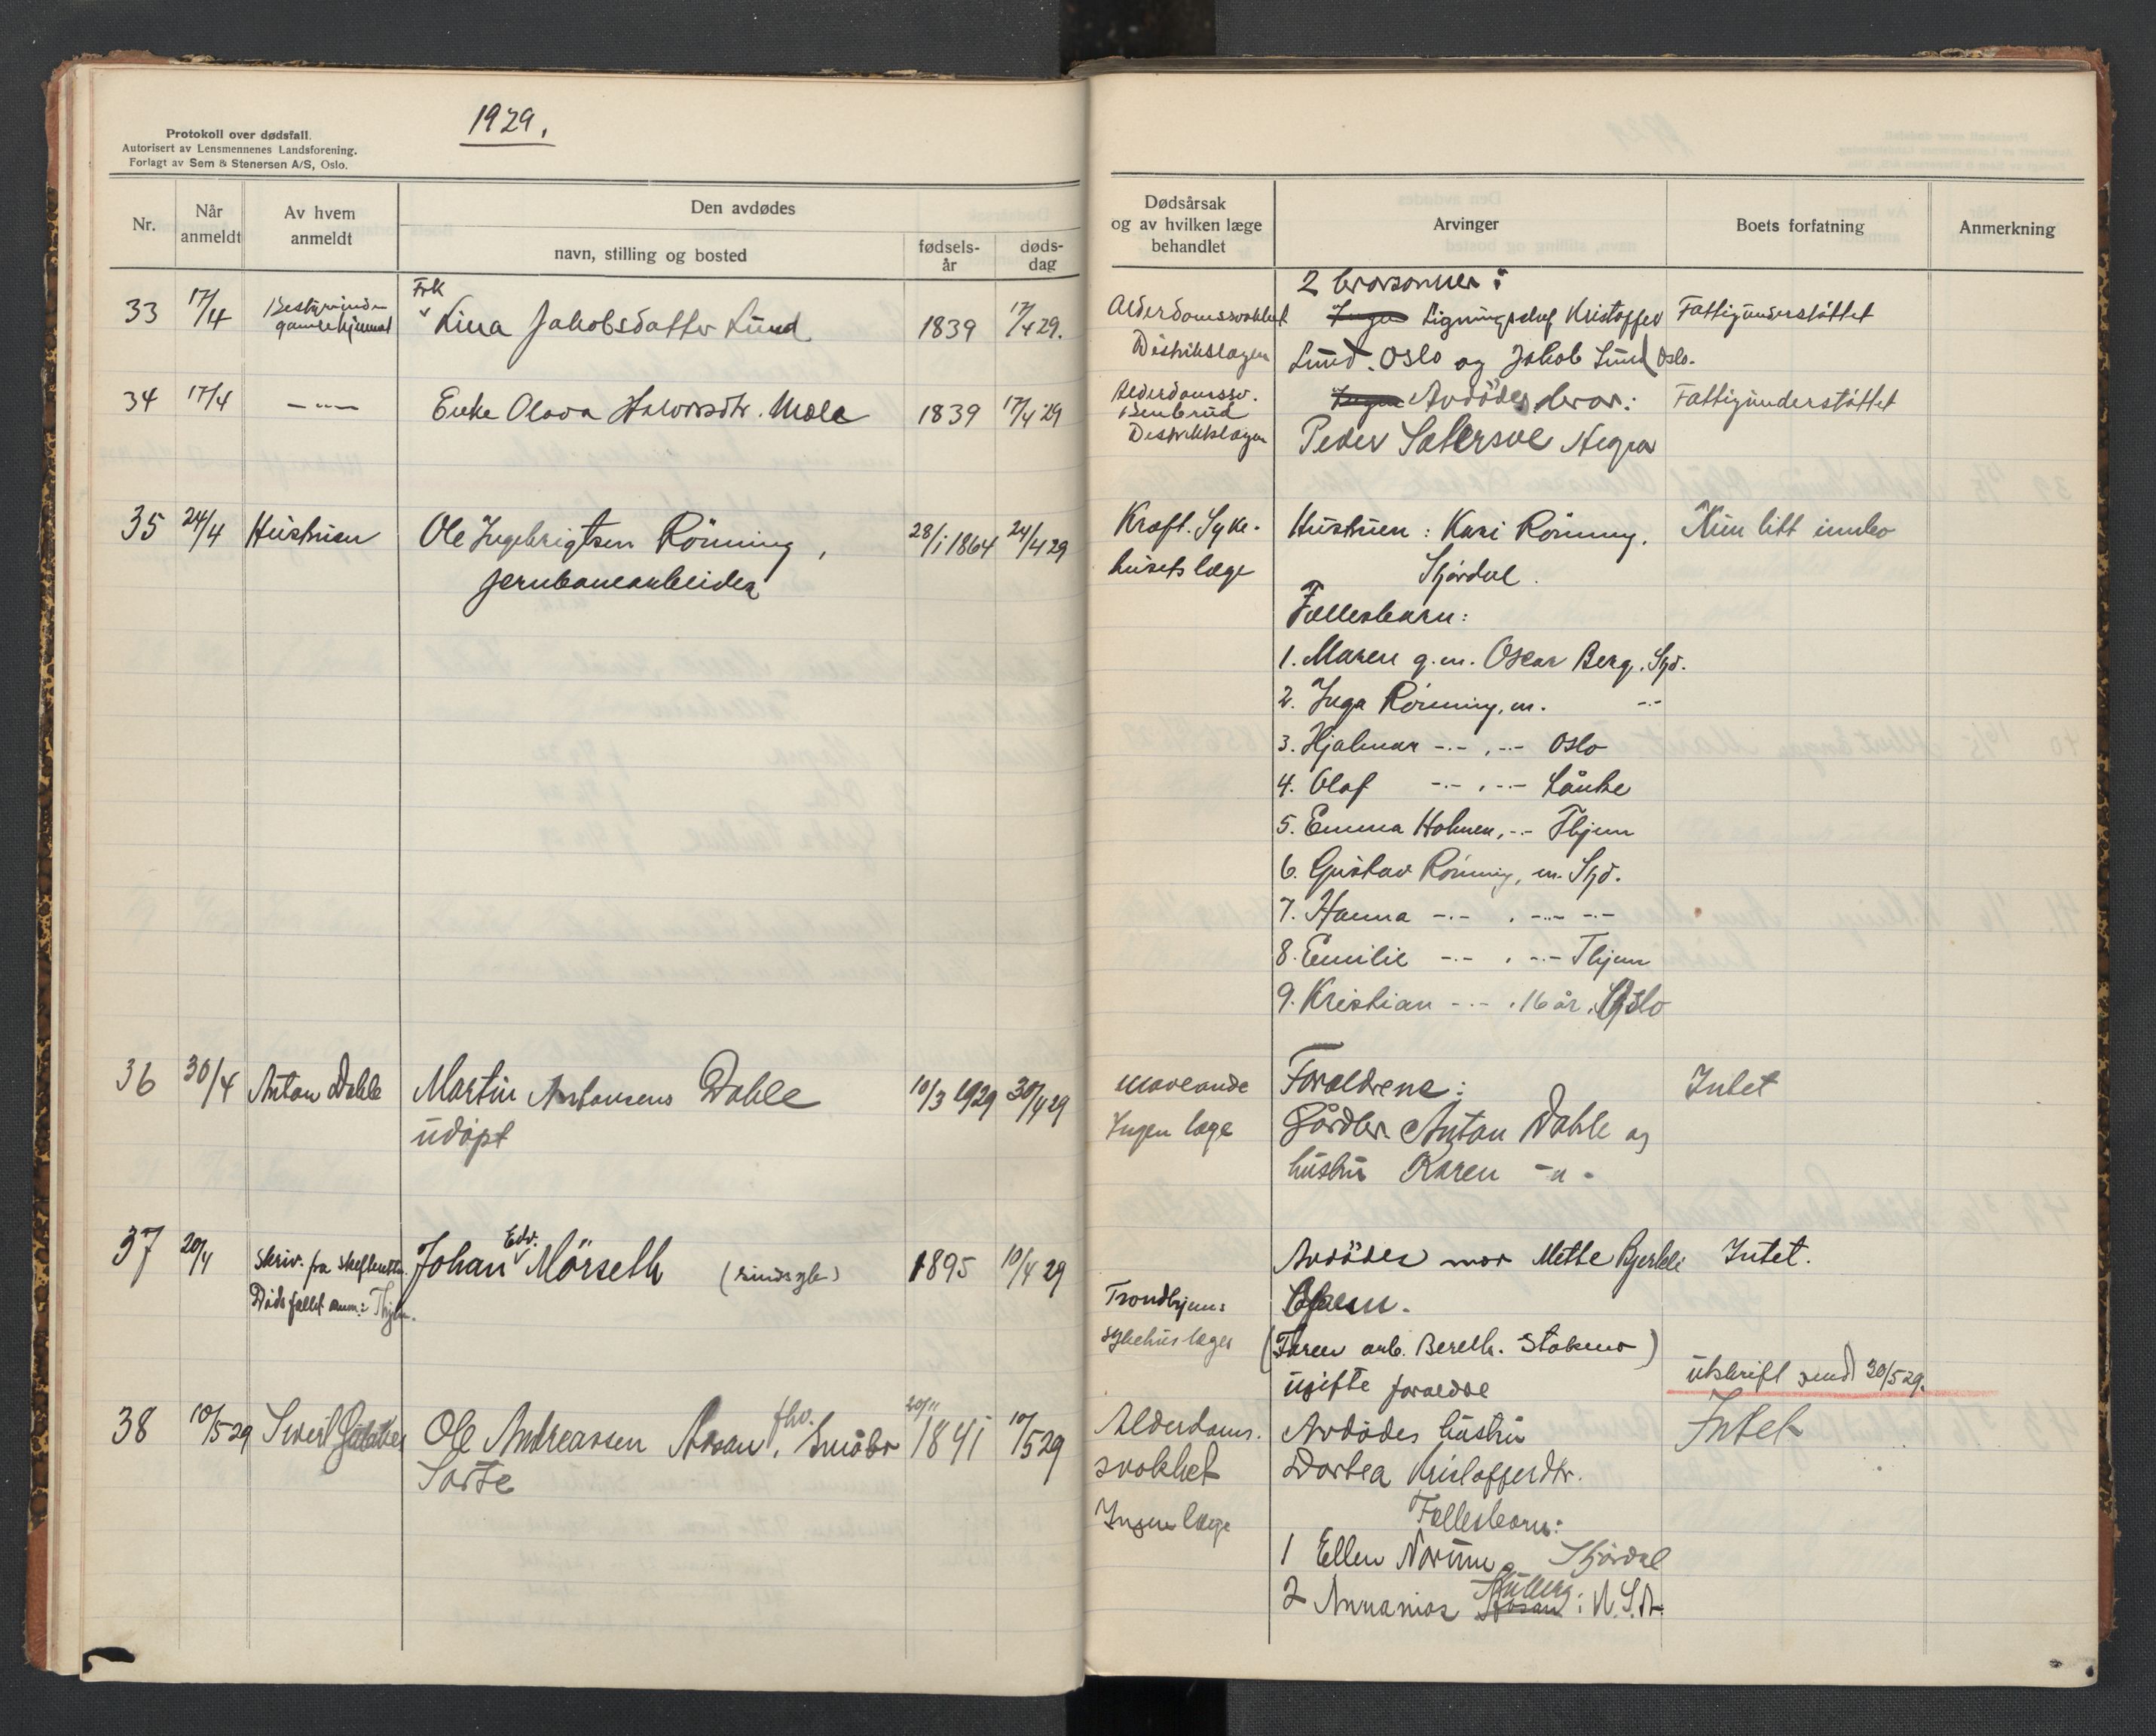 1929.
Protokoll over dødsfall.
Autorisert av Lensmennenes Landsforening.
Forlagt av Sem & Stenersen A/S, Oslo.
Nr.
Når anmeldt
Av hvem anmeldt
Den avdødes
navn, stilling og bosted
fødsels-år
døds-dag
Dødsårsak og av hvilken læge behandlet
Arvinger
Boets forfatning
Anmerkning
33 17/4 gamlehjemmet Frk Lina Jakobsdatter Lund 1839 17/4 29.
2 brorsønner:
Alderdomssvakhet Ingen Kristoffer Fattigunderstøttet
Distrikslægen Lund. Oslo og Jakob Lund Oslo.
34 17/4 -"- Enke Olava Halvorsdtr. Mæle 1839 17/4 29
Alderdomssv. Ingen Avdødes bror: Fattigunderstøttet
Benbrud
Distriktslægen Peder Hegra
35 24/4 Hustruen Ole Ingebrigtsen Rönning, 28/1 1864 24/4 29
jernbanearbeider
Kræft. Syke- Hustruen: Kari Rönning. Kun litt innbo
husets læge Stjørdal.
Fællesbarn:
1. Maren g.m. Oscar Berg, Stjd.
2. Inga Rönning, m. -"-
3. Hjalmar -"-, -"- Oslo
4. Olaf -"-, -"- Lånke
5. Emma Holmen, -"- Thjem
6. Gustav Rönning, m. Stjd.
7. Hanna -"-, -"- -"-
8. Emilie -"-, -"- Thjem
9. Kristian -"-, 16 år, Oslo
36 30/4 Anton Dahle Martin Antonsens Dahle 10/3 1929 30/4 29
udøpt
Maveonde Forældrene: Intet
Ingen læge Gårdbr. Anton Dahle og
hustru Karen -"-
37 20/4 Skriv. fra skifteretten. Johan Edv. Mörseth (sindssyk) 1895 10/4 29
Dødsfallet anm: Thjem.
Avdödes mor Mette Bjerkli Intet.
Trondhjems
sykehus læger (Faren arb. Bereth. Stokmo)
ugifte forældre utskrift sendt 30/5 29.
38 10/5 29 Sivert Ole Andreassen Aasan, fhv. Småbr 20/11 1841 10/5 29
Alderdoms- Avdødes hustru Intet
svakhet Dortea Kristofferdtr.
Fællesbarn:
Ingen læge
1 Ellen Skjørdal
2 Annanias Aasan : U.S.A.